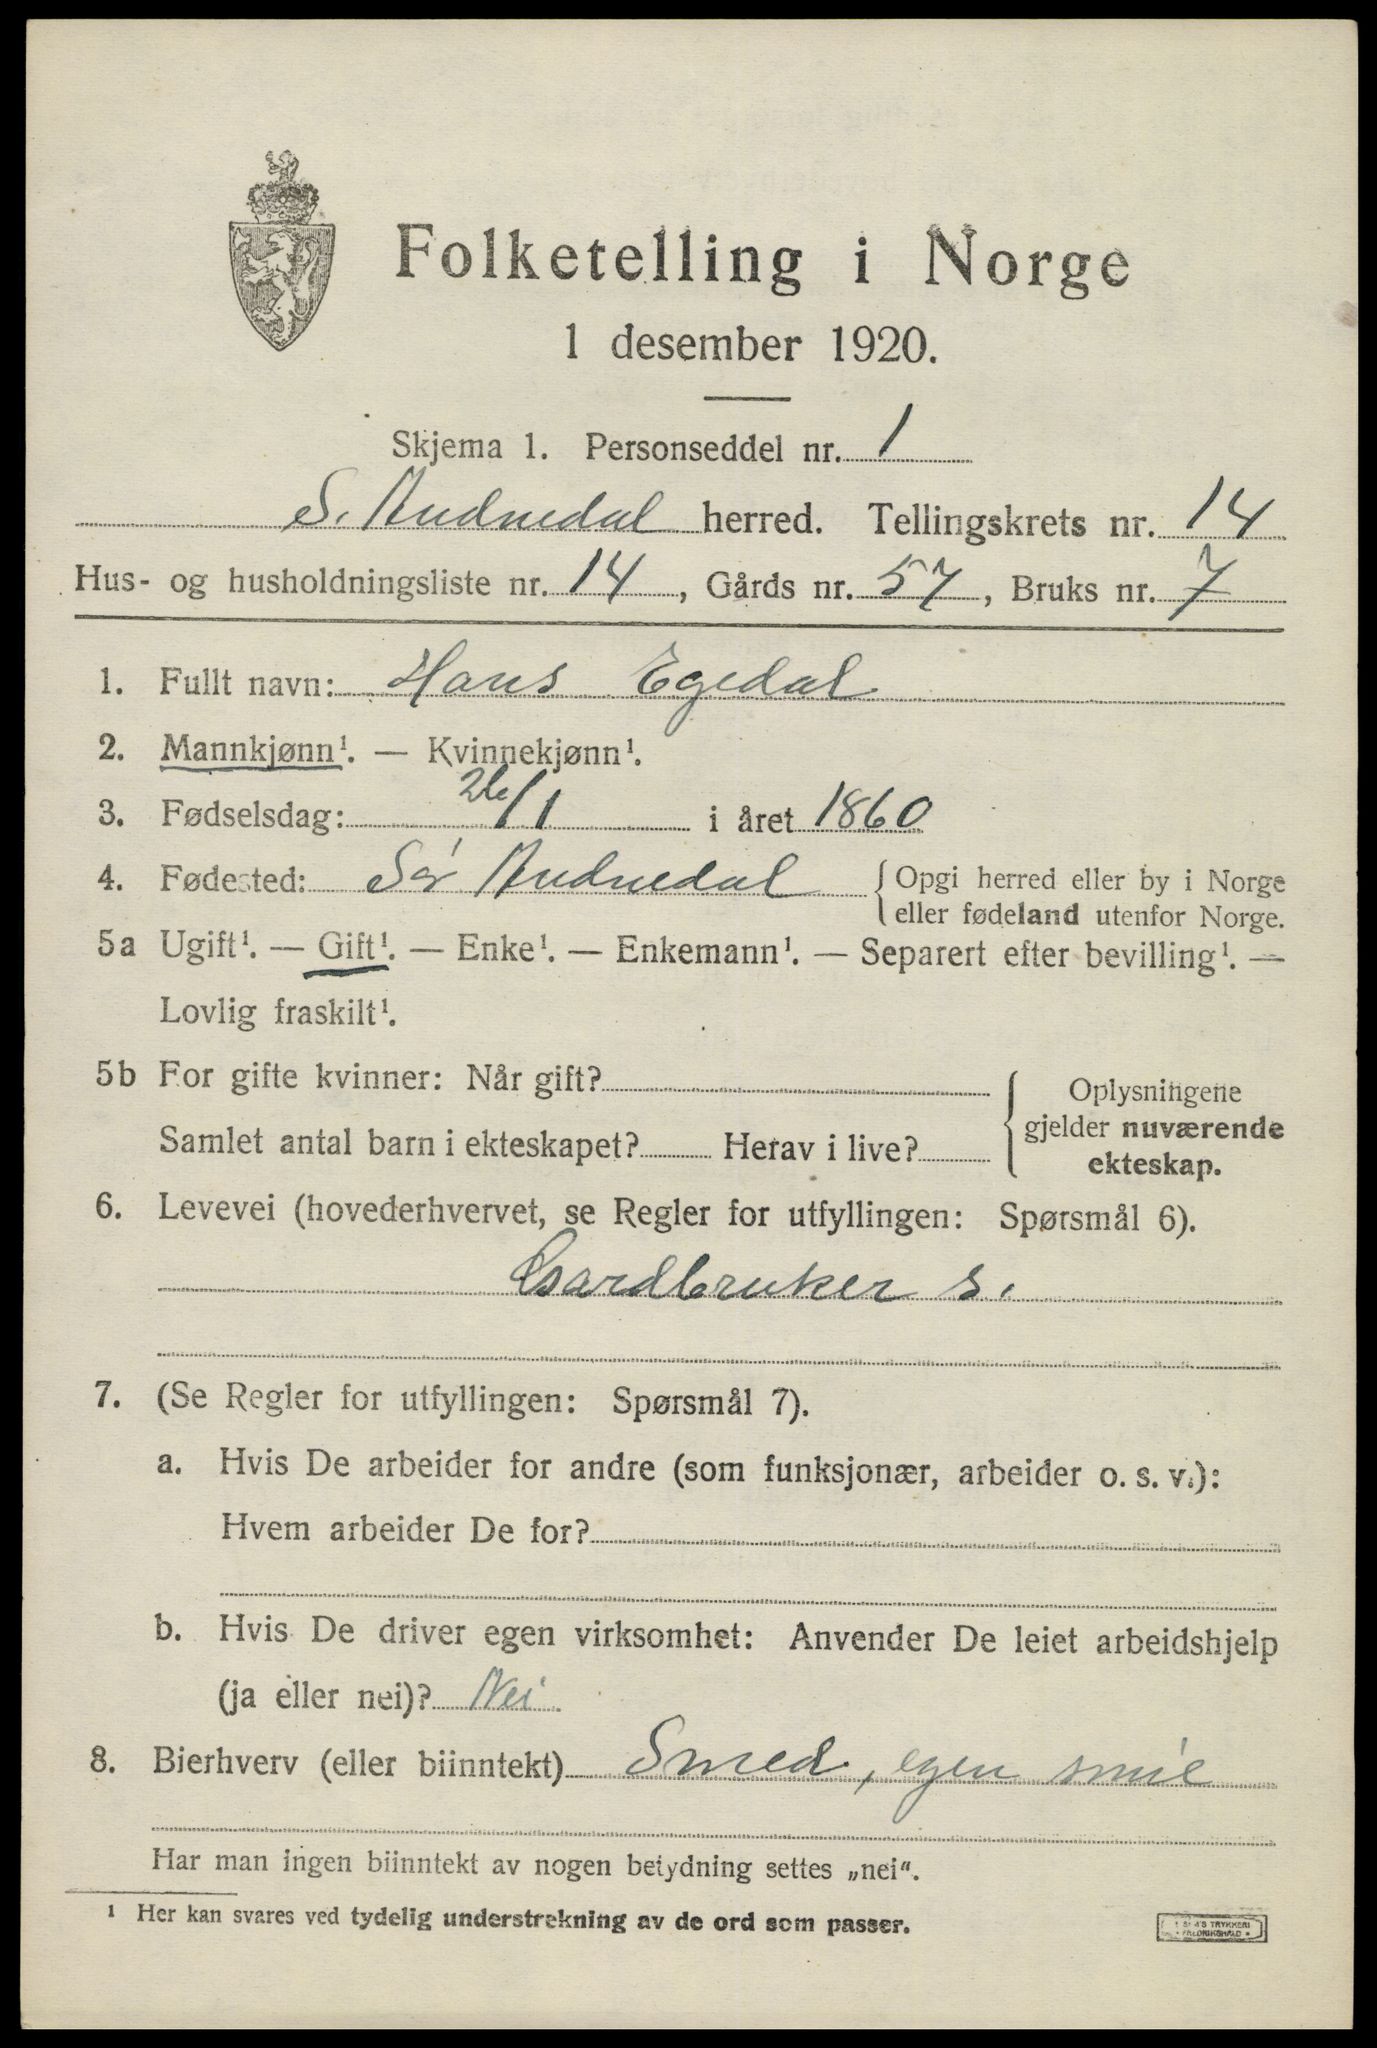 Folketelling i Norge
1 desember 1920.
Skjema 1. Personseddel nr. 1
S. Audnedal herred. Tellingskrets nr. 14
Hus- og husholdningsliste nr. 14, Gårds nr. 57, Bruks nr. 7
1. Fullt navn: Hans Egedal
2. Mannkjønn¹. — Kvinnekjønn¹.
3. Fødselsdag: 26/1 i året 1860
4. Fødested: Sør Audnedal { Opgi herred eller by i Norge
eller fødeland utenfor Norge.
5a Ugift¹. — Gift¹. — Enke¹. — Enkemann¹. — Separert efter bevilling¹. —
Lovlig fraskilt¹.
5b For gifte kvinner: Når gift? { Oplysningene
gjelder nuværende
Samlet antal barn i ekteskapet? Herav i live?
ekteskap.
6. Levevei (hovederhvervet, se Regler for utfyllingen: Spørsmål 6).
Gardbruker s.
7. (Se Regler for utfyllingen: Spørsmål 7).
a. Hvis De arbeider for andre (som funksjonær, arbeider o. s. v.):
Hvem arbeider De for?
b. Hvis De driver egen virksomhet: Anvender De leiet arbeidshjelp
(ja eller nei)? Nei
8. Bierhverv (eller biinntekt) Smed, egen smie
Har man ingen biinntekt av nogen betydning settes „nei“.
¹ Her kan svares ved tydelig understrekning av de ord som passer.
TRYKKERI
FREDRIKSHALD